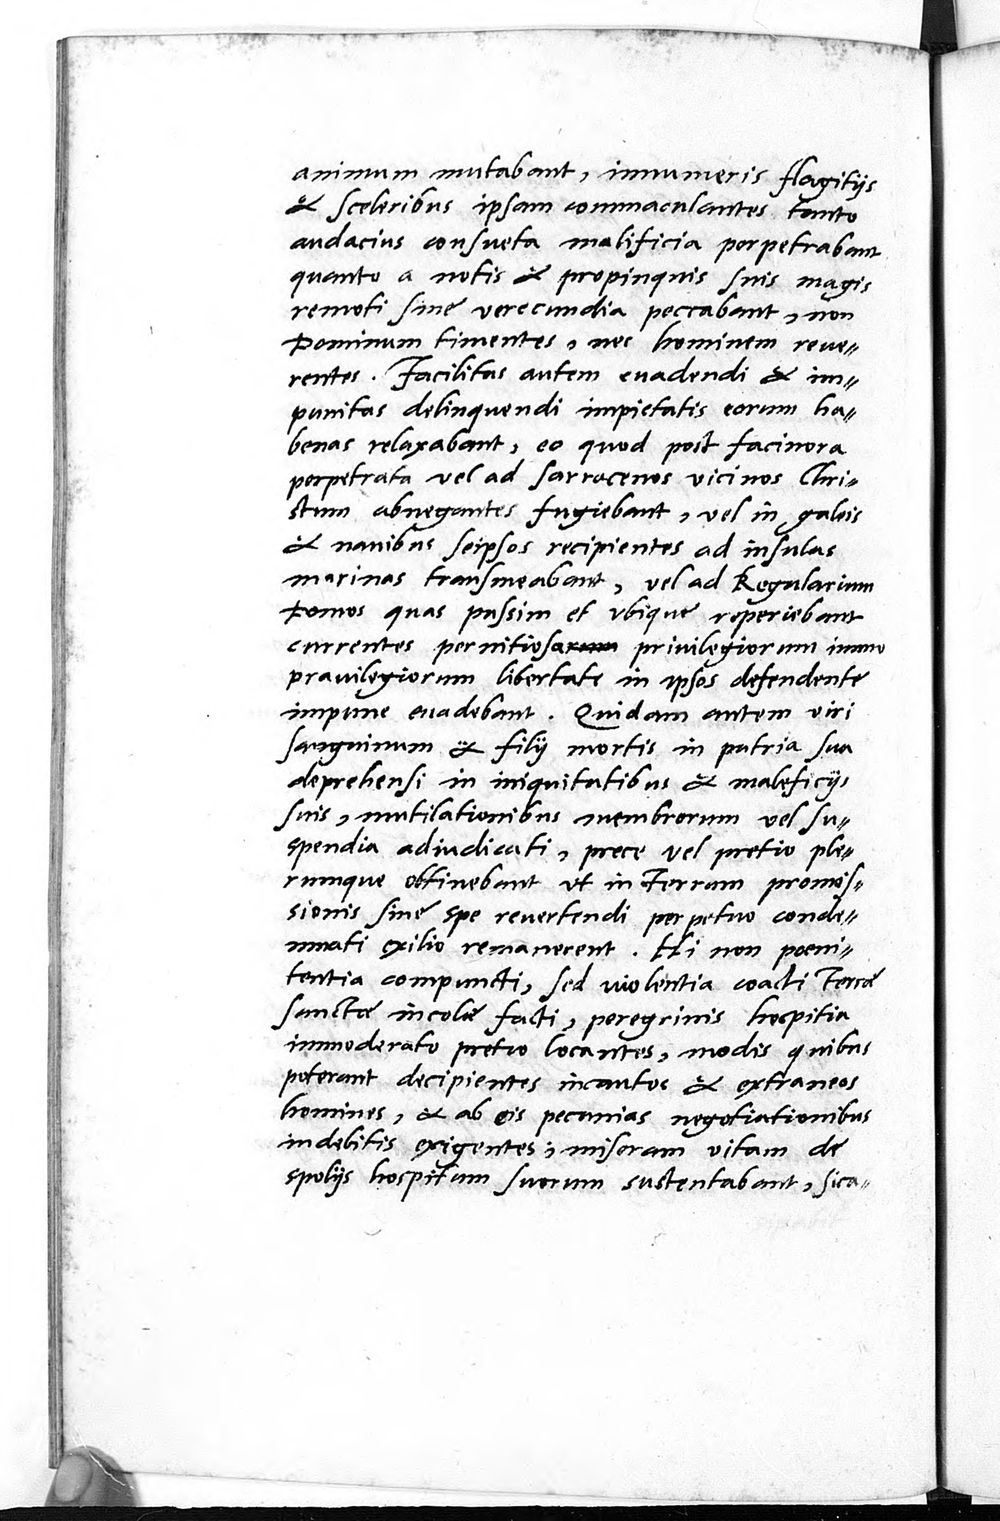 animum mutabant, innumeris flagitijs
& sceleribus ipsam commaculantes tanto
audacius consueta malificia perpetrabant
quanto a notis & propinquis suis magis
remoti sine verecundia peccabant, non
Dominum timentes, nec hominem reue„
rentes. Facilitas autem euadendi & im„
punitas delinquendi impietatis eorum ha„
benas relaxabant, eo quod post facinora
perpetrata vel ad Sarracenos vicinos Chri„
stum abnegantes fugiebant, vel in galeis
& nauibus seipsos recipientes ad insulas
marinas transmeabant, vel ad Regularium
Domos quas passim et vbique reperiebant
currentes pernitiosarum priuilegiorum immo
prauilegiorum libertate in ipsos defendente
impune euadebant. Quidam autem viri
sanguinum & filij mortis in patria sua
deprehensi in iniquitatibus & maleficijs
suis, mutilationibus membrorum vel su„
spendia adiudicati, prece vel pretio ple„
rumque obtinebant vt in Terram promis„
sionis sine spe reuertendi perpetuo conde„
mnati exilio remanerent. Hi non poeni„
tentia compuncti, sed violentia coacti Terræ
Sanctæ incolæ facti, peregrinis hospitia
immoderato pretio locantes, modis quibus
poterant decipientes incautos & extraneos
homines, & ab eis pecunias negotiationibus
indebitis exigentes; miseram vitam de
spolijs hospitum suorum sustentabant, sica„